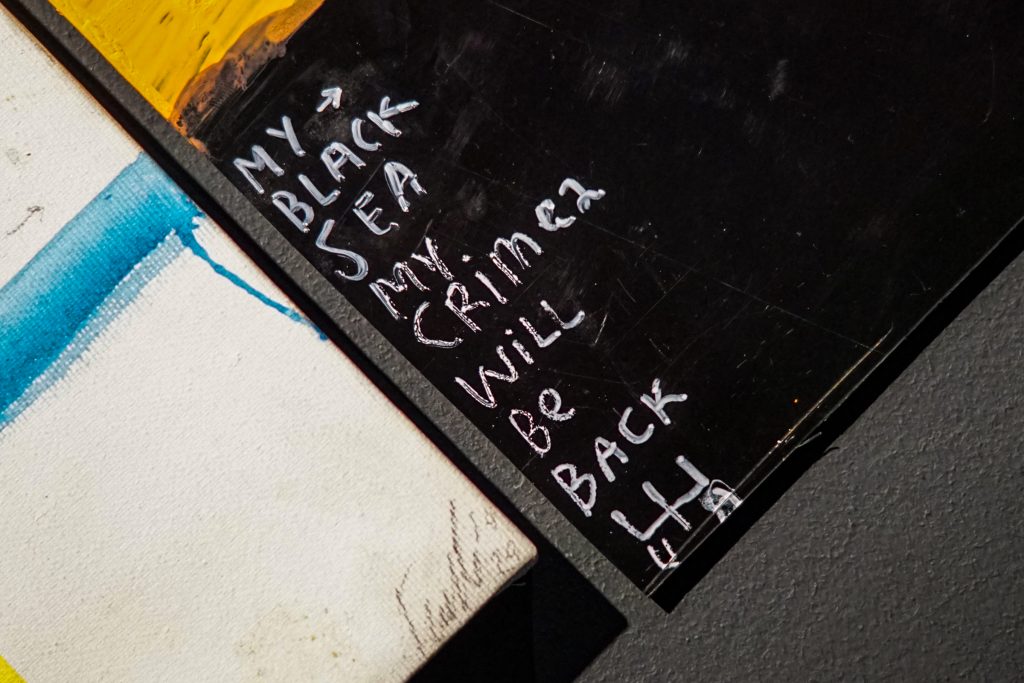 MY →
BLACK
SEA
MY
CRiMea
WiLL
Be
BACK